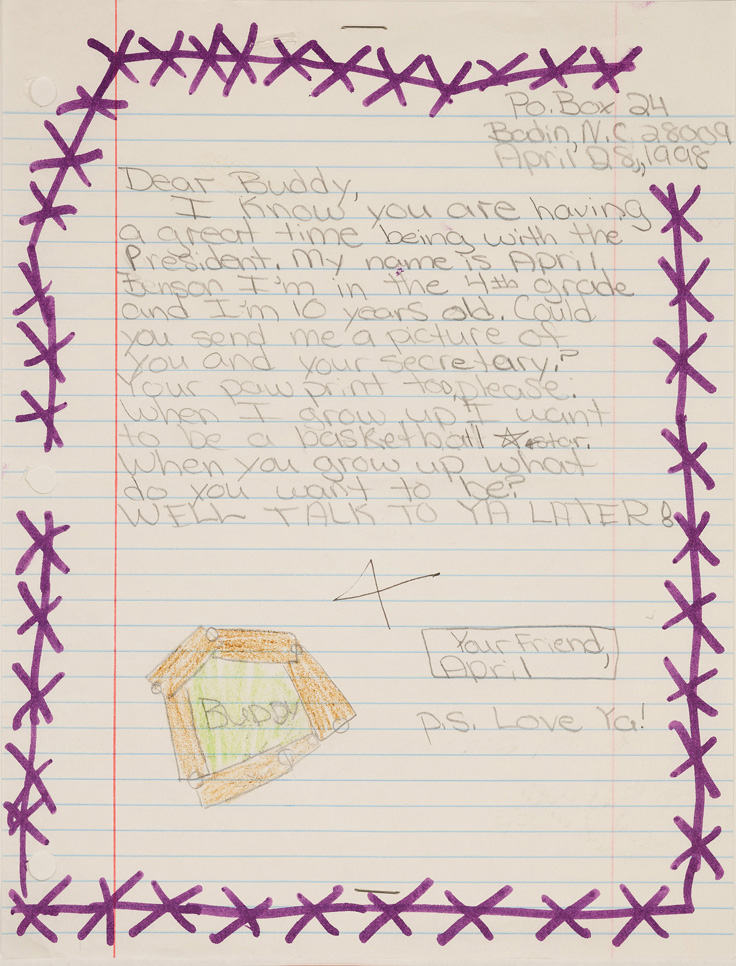 P.o. Box 24
Badin, N.C. 28009
April 28, 1998
Dear Buddy,
I know you are having
a great time being with the
President. My name is April
I'm in the 4th grade
and I'm 10 years old. Could
you send me a picture of
you and your secretary.?
Your paw print too, please.
When I grow up I want
to be a basketball star.
When you grow up what
do you want to be?
WELL TALK TO YA LATER!
Your Friend,
April
BUDDY
P.S. Love Ya!